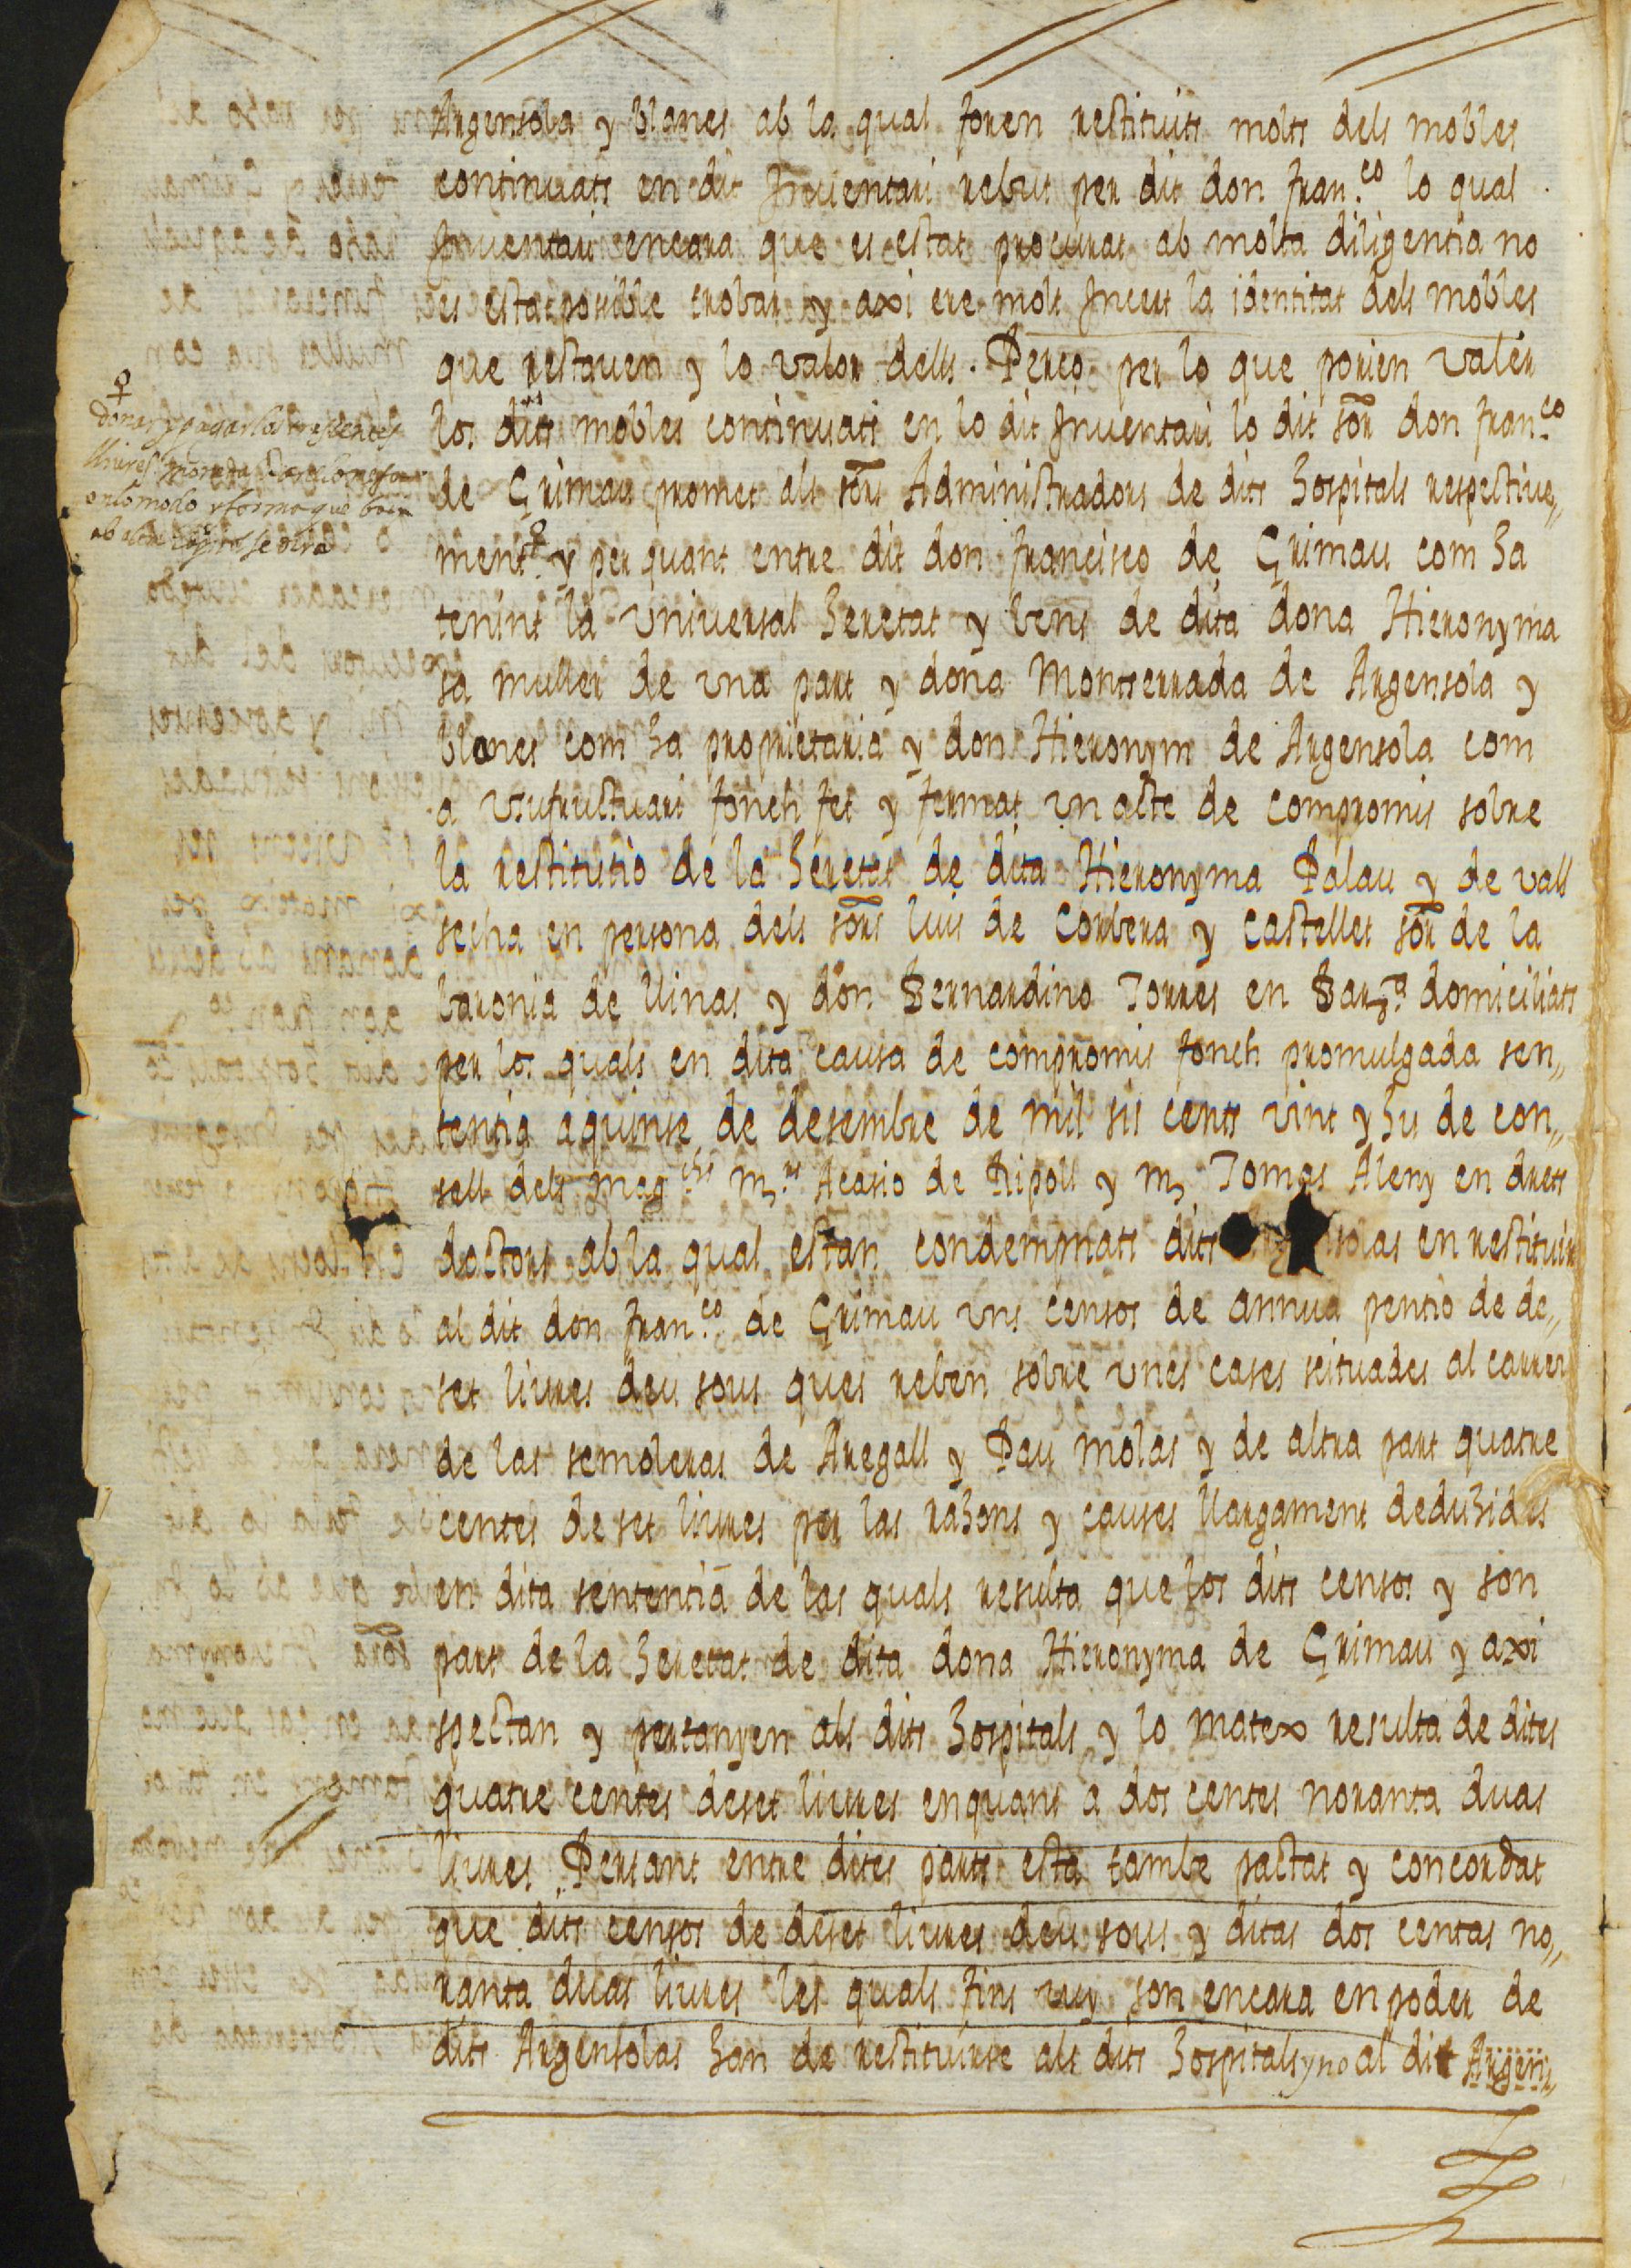 Argensola y blanes ab la qual foren restituits molts dels mobles
continuats en dit Inventari rebut per dit don fran.co lo qual
Inventari encara que es estat procurat ab molta diligentia no
es estat posible trobar y axi ere molt Incert la identitat dels mobles
que restauen y lo valor dells. Perço per lo que porien valer
los dits mobles continuats en lo dit Inuentari lo dit sor don fran.co
de Grimau promet als sors Administradors de dits Hospitals respectiue„
ment ♀ y per quant entre dit don francisco de Grimau com ha
tenint la vniuersal heretat y bens de dita dona Hieronyma
sa muller de vna part y dona Montserrada de Argensola y
blanes com ha proprietaria y don Hieronym de Argensola com
a vsufructuari fonch fet y fermat vn acte de compromis sobre
la restitutio de la heretat de dita Hieronyma Palau y de vall
secha en persona dels sors luis de Corbera y Castellet sor de la
baronia de llinas y don Bernardino Torres en Barna domiciliats
per los quals en dita causa de compromis fonch promulgada sen„
tentia a quinse de desembre de mil sis cents vint y hu de con„
sell dels mag.chs m.rs Acasio de Ripoll y m.r Tomas Aleny en drets
doctors ab la qual estan condempnats dits solas en restituir
al dit don fran.co de Grimau vns censos de annua pentio de de„
set liures deu sous ques reben sobre vnes cases scituades al carrer
de las semoleras de Aregall y Pau Molas y de altra part quatre
centes de set liures per las rahons y causes llargament deduhides
en dita sententia de las quals resulta que los dits censos y son
part de la heretat de dita dona Hieronyma de Grimau y axi
spectan y pertanyen als dits Hospitals y lo matex resulta de dites
quatre centes deset liures enquant a dos centes noranta duas
liures Pertant entre dites parts esta tambe pactat y concordat
que dits censos de deset liures deu sous y ditas dos centas no„
ranta duas liures les quals fins vuy son encara en poder de
dits Argensolas han de restituirse als dits Hospitals y no al dit Argen„
♀
donar y pagar los
lliures moneda Barcelonesa
en lo modo y forma que baix
ab altre se dira